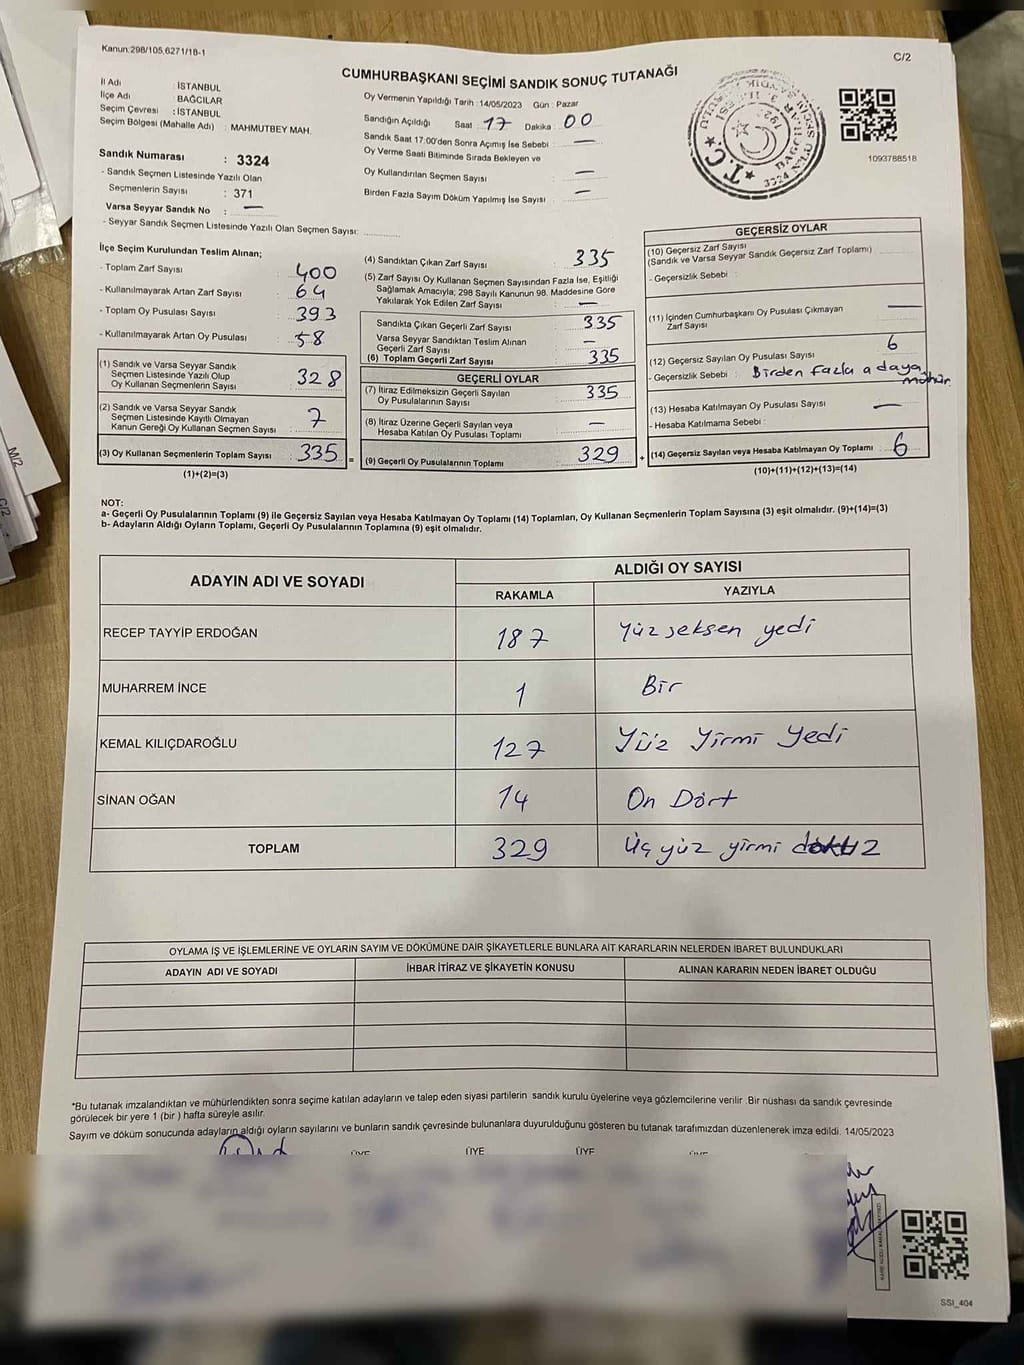 Kanun:298/105,6271/18-1
C/2
CUMHURBAŞKANI SEÇİMİ SANDIK SONUÇ TUTANAĞI
İl Adı İSTANBUL
İlçe Adı BAĞCILAR
Seçim Çevresi : İSTANBUL
Seçim Bölgesi (Mahalle Adı) : MAHMUTBEY MAH.
Sandık Numarası : 3324
- Sandık Seçmen Listesinde Yazılı Olan
Seçmenlerin Sayısı : 371
Varsa Seyyar Sandık No : —
- Seyyar Sandık Seçmen Listesinde Yazılı Olan Seçmen Sayısı:
Oy Vermenin Yapıldığı Tarih : 14/05/2023 Gün : Pazar
Sandığın Açıldığı Saat 17 Dakika 00
Sandık Saat 17:00'den Sonra Açımış İse Sebebi —
Oy Verme Saati Bitiminde Sırada Bekleyen ve
Oy Kullandırılan Seçmen Sayısı —
Birden Fazla Sayım Döküm Yapılmış İse Sayısı —
T.C.
1093788518
İlçe Seçim Kurulundan Teslim Alınan;
- Toplam Zarf Sayısı 400
- Kullanılmayarak Artan Zarf Sayısı 64
- Toplam Oy Pusulası Sayısı 393
- Kullanılmayarak Artan Oy Pusulası 58
(1) Sandık ve Varsa Seyyar Sandık
Seçmen Listesinde Yazılı Olup
Oy Kullanan Seçmenlerin Sayısı 328
(2) Sandık ve Varsa Seyyar Sandık
Seçmen Listesinde Kayıtlı Olmayan
Kanun Gereği Oy Kullanan Seçmen Sayısı 7
(3) Oy Kullanan Seçmenlerin Toplam Sayısı 335 =
(1)+(2)=(3)
(4) Sandıktan Çıkan Zarf Sayısı 335
(5) Zarf Sayısı Oy Kullanan Seçmen Sayısından Fazla İse, Eşitliği
Sağlamak Amacıyla; 298 Sayılı Kanunun 98. Maddesine Göre
Yakılarak Yok Edilen Zarf Sayısı : —
Sandıkta Çıkan Geçerli Zarf Sayısı 335
Varsa Seyyar Sandıktan Teslim Alınan
Geçerli Zarf Sayısı —
(6) Toplam Geçerli Zarf Sayısı 335
GEÇERLİ OYLAR
(7) İtiraz Edilmeksizin Geçerli Sayılan
Oy Pusulalarının Sayısı 335
(8) İtiraz Üzerine Geçerli Sayılan veya
Hesaba Katılan Oy Pusulası Toplamı —
(9) Geçerli Oy Pusulalarının Toplamı 329 +
GEÇERSİZ OYLAR
(10) Geçersiz Zarf Sayısı
(Sandık ve Varsa Seyyar Sandık Geçersiz Zarf Toplamı)
- Geçersizlik Sebebi :
(11) İçinden Cumhurbaşkanı Oy Pusulası Çıkmayan
Zarf Sayısı —
(12) Geçersiz Sayılan Oy Pusulası Sayısı 6
- Geçersizlik Sebebi : Birden fazla adaya
mühür
(13) Hesaba Katılmayan Oy Pusulası Sayısı —
- Hesaba Katılmama Sebebi :
(14) Geçersiz Sayılan veya Hesaba Katılmayan Oy Toplamı 6
(10)+(11)+(12)+(13)=(14)
NOT:
a- Geçerli Oy Pusulalarının Toplamı (9) ile Geçersiz Sayılan veya Hesaba Katılmayan Oy Toplamı (14) Toplamları, Oy Kullanan Seçmenlerin Toplam Sayısına (3) eşit olmalıdır. (9)+(14)=(3)
b- Adayların Aldığı Oyların Toplamı, Geçerli Oy Pusulalarının Toplamına (9) eşit olmalıdır.
ADAYIN ADI VE SOYADI
ALDIĞI OY SAYISI
RAKAMLA YAZIYLA
RECEP TAYYİP ERDOĞAN 187 Yüz seksen yedi
MUHARREM İNCE 1 Bir
KEMAL KILIÇDAROĞLU 127 Yüz Yirmi Yedi
SİNAN OĞAN 14 On Dört
TOPLAM 329 Üç yüz yirmi
OYLAMA İŞ VE İŞLEMLERİNE VE OYLARIN SAYIM VE DÖKÜMÜNE DAİR ŞİKAYETLERLE BUNLARA AİT KARARLARIN NELERDEN İBARET BULUNDUKLARI
ADAYIN ADI VE SOYADI İHBAR İTİRAZ VE ŞİKAYETİN KONUSU ALINAN KARARIN NEDEN İBARET OLDUĞU
*Bu tutanak imzalandıktan ve mühürlendikten sonra seçime katılan adayların ve talep eden siyasi partilerin sandık kurulu üyelerine veya gözlemcilerine verilir. Bir nüshası da sandık çevresinde
görülecek bir yere 1 (bir) hafta süreyle asılır.
Sayım ve döküm sonucunda adayların aldığı oyların sayılarını ve bunların sandık çevresinde bulunanlara duyurulduğunu gösteren bu tutanak tarafımızdan düzenlenerek imza edildi. 14/05/2023
ÜYE ÜYE ÜYE ÜYE
SSI_404
M/2
C/2